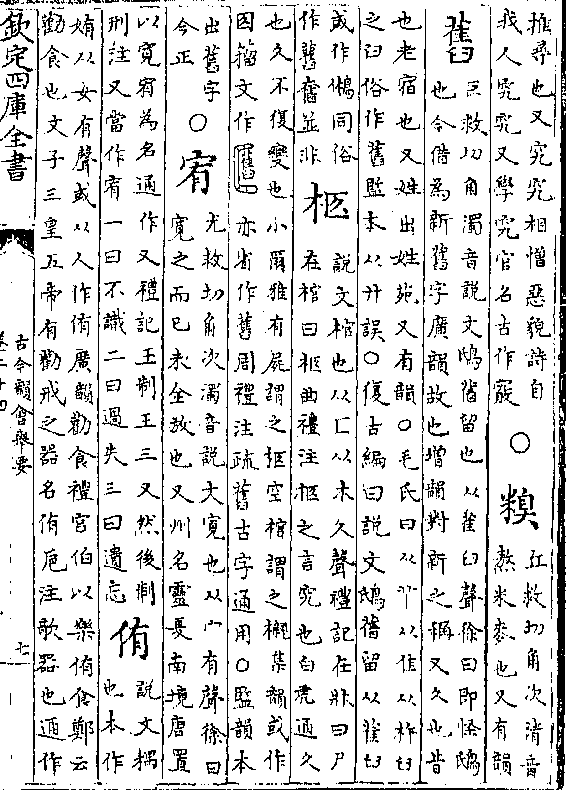 推尋也又究究相憎惡貌詩自
我人究究又學究官名古作
○
糗
丘救切角次清音
熬米麥也又有韻
舊
巨救切角濁音說文鴟舊留也从雈臼聲徐曰即怪鴟
也今借為新舊字廣韻故也增韻對新之稱又久也昔
也老宿也又姓出姓苑又有韻○毛氏曰从卝从隹从杵臼
之臼俗作舊監本从廾誤○復古編曰說文鴟舊留从雈臼
或作鵂同俗
作舊奮並非
柩
說文棺也从匚从木久聲禮記在牀曰尸
在棺曰柩曲禮注柩之言究也白虎通久
也久不復變也小爾雅有屍謂之柩空棺謂之櫬集韻或作
匛籀文作𠤅亦省作舊周禮注疏舊古字通用○監韻本
出舊字
今正
○
宥
尤救切角次濁音說文寬也从宀有聲徐曰
寛之而已未全放也又州名靈夏南境唐置
以寬宥為名通作又禮記王制王三又然後制
刑注又當作宥一曰不識二曰過失三曰遺忘
侑
說文耦
也本作
姷从女有聲或从人作侑廣韻勸食禮宮伯以樂侑食鄭云
勸食也文子三皇五帝有勸戒之器名侑巵注欹器也通作
欽定四庫全書
古今韻會舉要
卷二十四
七